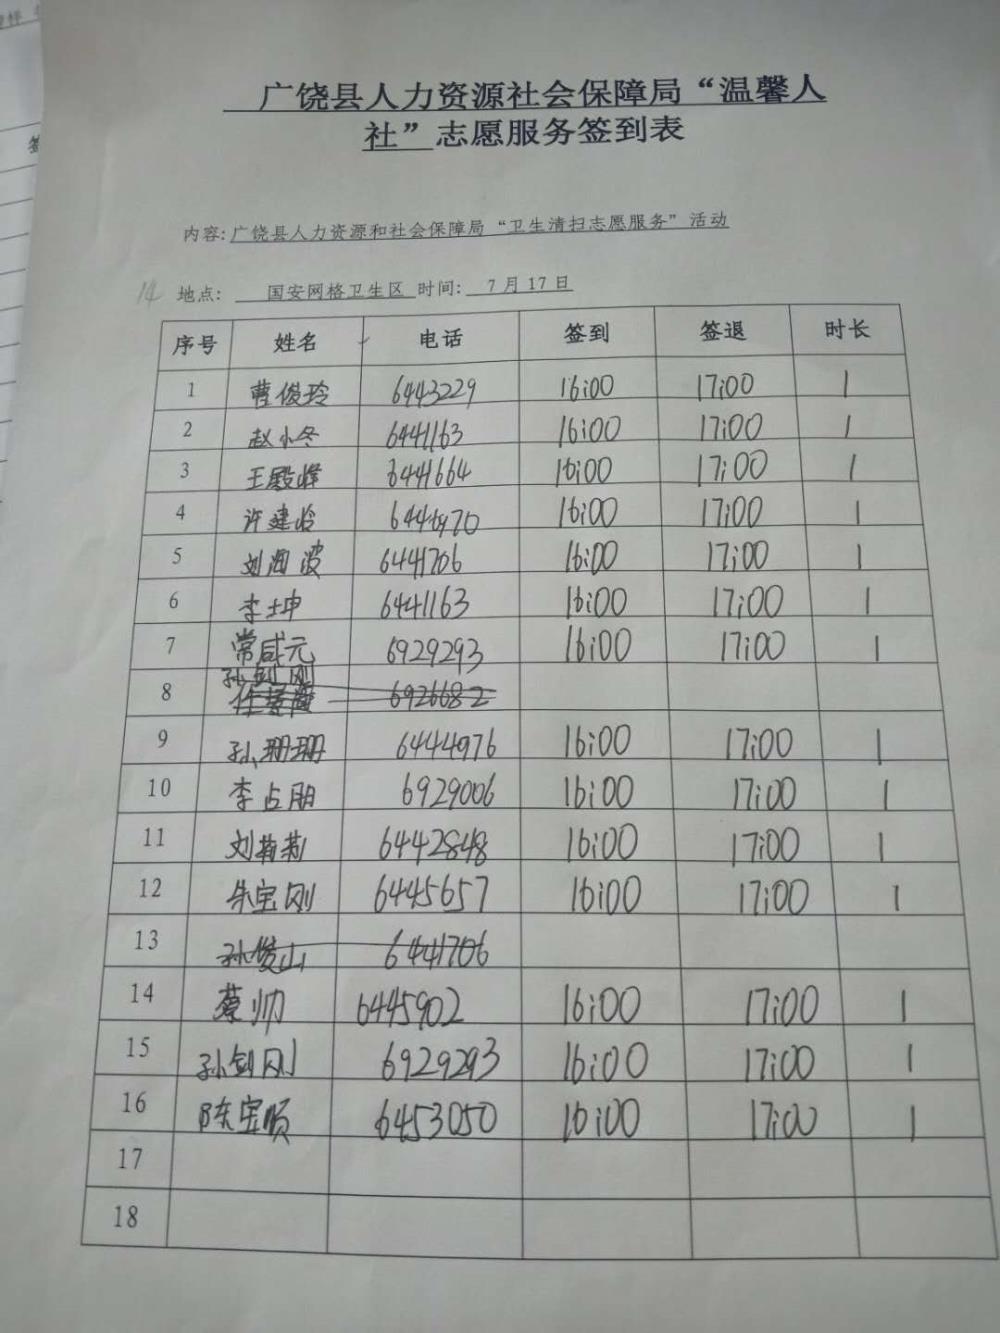 广饶县人力资源社会保障局“温馨人
社”志愿服务签到表
内容:广饶县人力资源和社会保障局“卫生清扫志愿服务”活动
14 地点: 国安网格卫生区 时间: 7月17日
序号 姓名 电话 签到 签退 时长
1 曹俊玲 6443229 16:00 17:00 1
2 赵小冬 6441163 16:00 17:00 1
3 王殿峰 6441664 16:00 17:00 1
4 许建岭 16:00 17:00 1
5 刘海波 6441706 16:00 17:00 1
6 李士坤 6441163 16:00 17:00 1
7 常咸元 6929293 16:00 17:00 1
孙剑刚
8 6926682
9 孙珊珊 6444976 16:00 17:00 1
10 李占朋 6929006 16:00 17:00 1
11 刘莉莉 6442848 16:00 17:00 1
12 朱宝刚 6445657 16:00 17:00 1
13 孙俊山 6441706
14 蔡帅 6445902 16:00 17:00 1
15 孙剑刚 6929293 16:00 17:00 1
16 陈宝顺 6453050 16:00 17:00 1
17
18